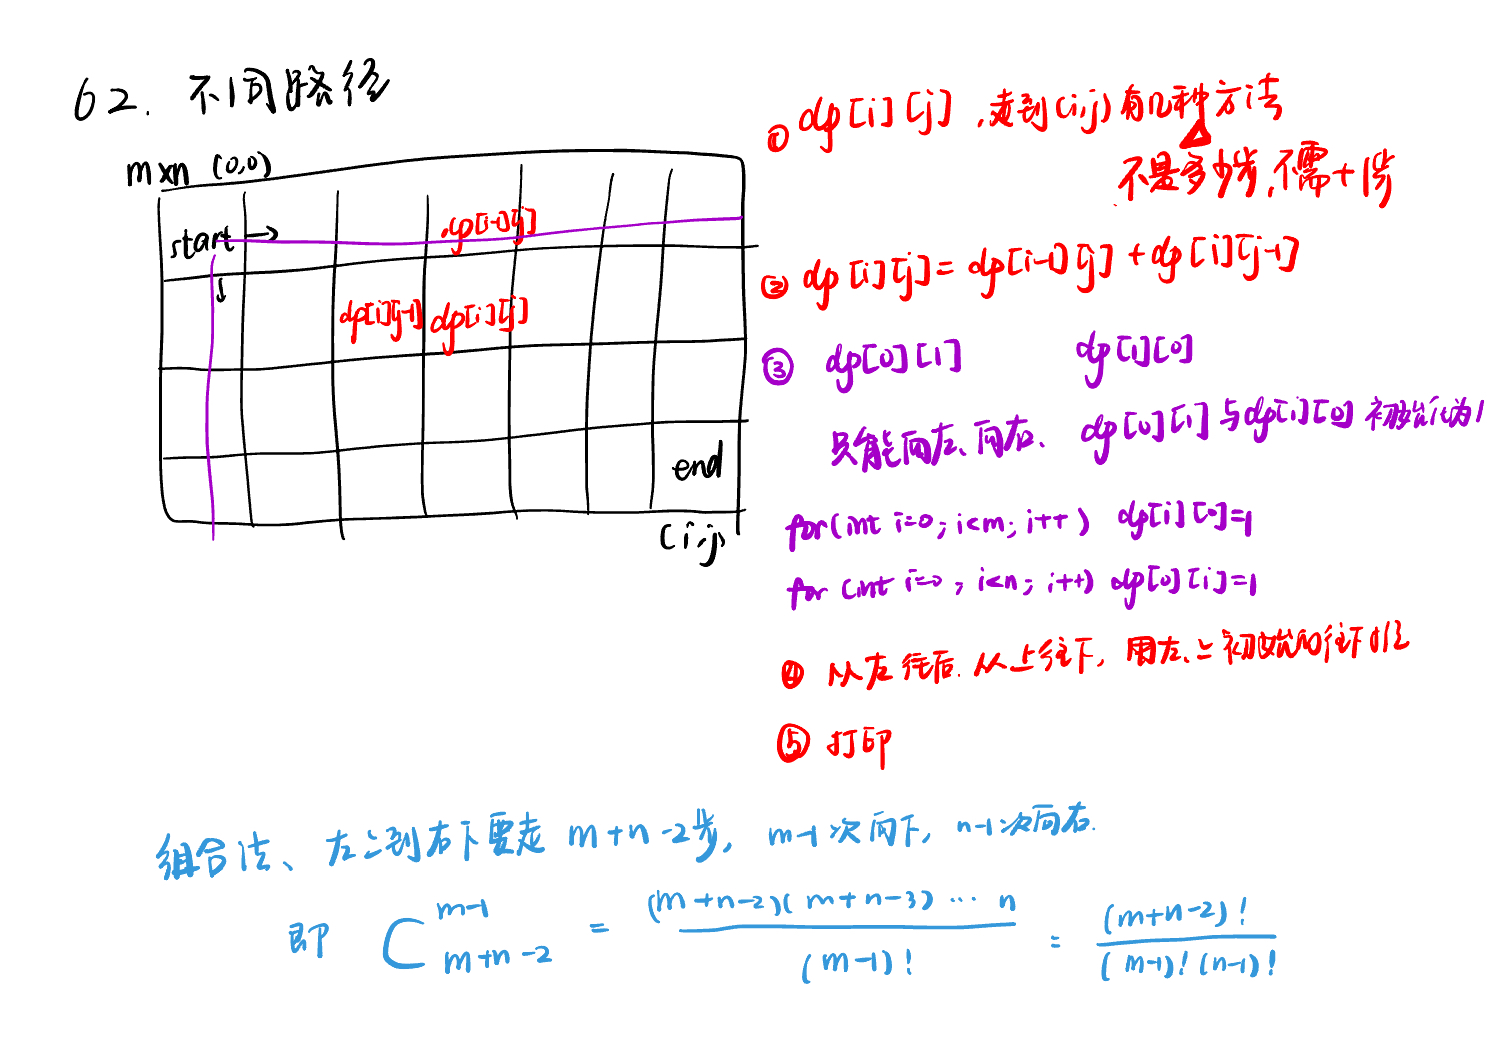 62. 不同路径
m×n (0,0)
start →
dp[i-1][j]
dp[i][j-1] dp[i][j]
end
(i,j)
① dp[i][j],走到(i,j)有几种方法
不是多少步,不需+1步
② dp[i][j]= dp[i-1][j] + dp[i][j-1]
③ dp[0][i] dp[i][0]
只能向左、向右、dp[0][i]与dp[i][0]初始化为1
for(int i=0; i<m; i++) dp[i][0]=1
for(int i=0; i<n; i++) dp[0][i]=1
④ 从左往后.从上往下,用左、上初始的往下推
⑤ 打印
组合法、左上到右下要走 m+n-2步, m-1次向下, n-1次向右.
即 C_{m+n-2}^{m-1} = (m+n-2)(m+n-3)…n / (m-1)! = (m+n-2)! / (m-1)!(n-1)!